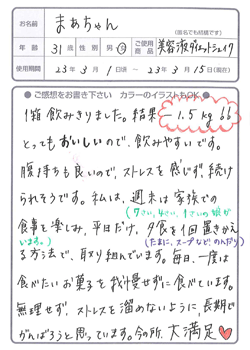 お名前 まぁちゃん
(匿名でも結構です)
年齢 31歳 性別 男・女 ご使用商品 美容液ダイエットシェイク
使用期間 23年3月1日ごろ ～ 23年3月15日(現在)
●ご感想をお書き下さい カラーのイラストもOK●
1箱飲みきりました。結果 -1.5kg
とってもおいしいので、飲みやすいです。
腹持ちも良いので、ストレスを感じず、続け
られそうです。私は、週末は家族での
(7さい、4さい、1さいの娘が
食事を楽しみ、平日だけ、夕食を1回置きかえ
います。) (たまに、スープなど!のんだり)
る方法で、取り組んでいます。毎日、一度は
食べたいお菓子を我慢せずに食べています。
無理せず、ストレスを溜めないように、長期で
がんばろうと思っています。今の所、大満足♥